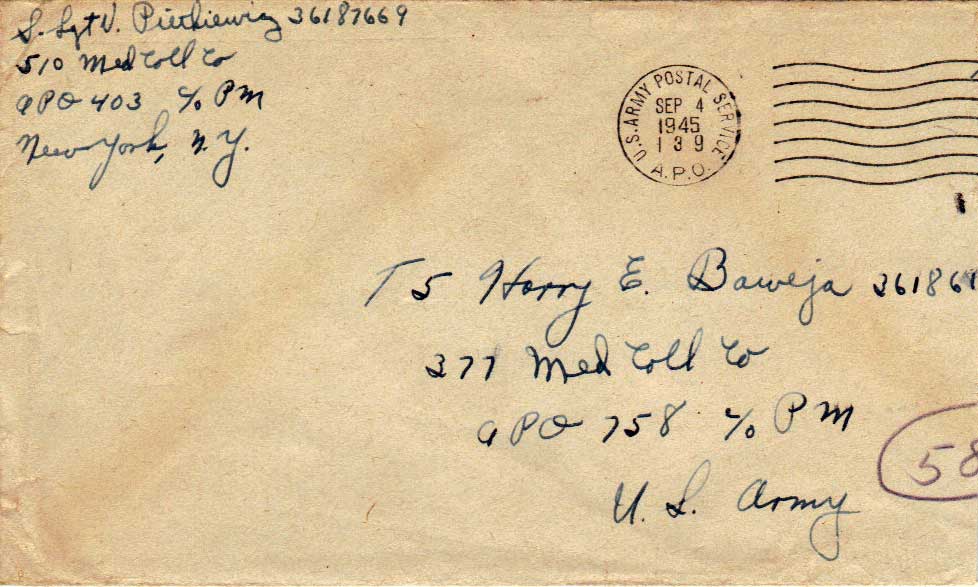 S. Sgt V. Pietkiewicz 36187669
510 Med Coll Co
APO 403 c/o PM
New York, N.Y.
U.S. ARMY POSTAL SERVICE
SEP 4
1945
1 3 9
A.P.O.
T 5 Harry E. Baweja 361861
377 Med Coll Co
APO 758 c/o PM
U. S. Army
58